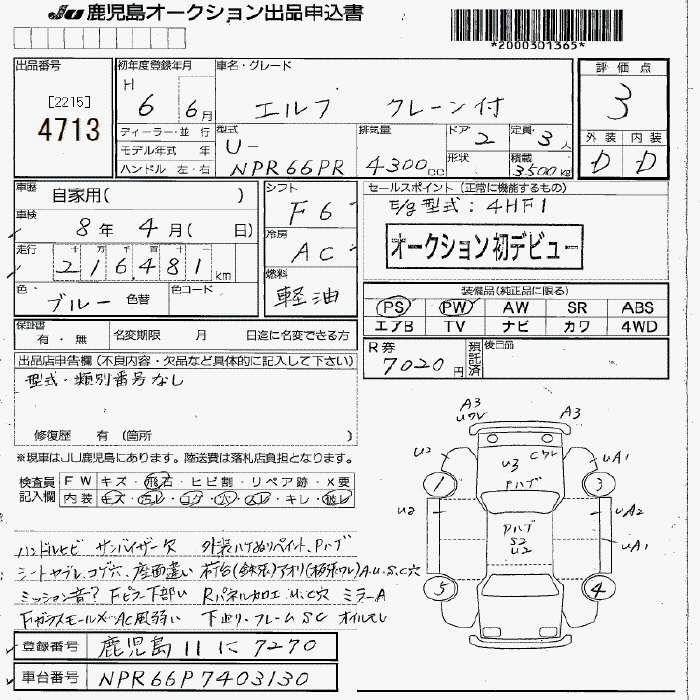 JU 鹿児島オークション出品申込書
*2000301365*
出品番号
[2215]
4713
初年度登録年月
H 6 6月
車名・グレード
エルフ クレーン付
評価点
3
外装 内装
D D
ディーラー・並 行
モデル年式 年
ハンドル 左・右
型式
U-
NPR66PR
排気量
4300cc
ドア 2
形状
定員 3人
積載
3500kg
車歴
自家用( )
車検
8年 4月( 日)
走行
216,481km
色
ブルー 色替
色コード
シフト
F6
冷房
AC
燃料
軽油
セールスポイント(正常に機能するもの)
E/g型式:4HF1
オークション初デビュー
装備品(純正品に限る)
PS PW AW SR ABS
エアB TV ナビ カワ 4WD
保証書
有・無
名変期限 月 日迄に名変できる方
R券
7020円
預託済
後日品
出品店申告欄(不良内容・欠品など具体的に記入して下さい)
型式・類別番号なし
修復歴 有(箇所 )
※現車はJU鹿児島にあります。陸送費は落札店負担となります。
検査員記入欄
FW キズ・飛石・ヒビ割・リペア跡・X要
内装 キズ・汚レ・コゲ・穴・スレ・キレ・破レ
ハンドルヒビ サンバイザー欠 外装ハケぬりペイント、Pハブ
シートヤブレ、コゲ穴、座面違い 荷台(鉄板)アオリ(板ワレ)A.U.S.C穴
ミッション音? Fピラー下部い Rパネル加工 U.C穴 ミラーA
FガラスモールX AC風弱い 下廻り・フレームSC オイルモレ
登録番号 鹿児島11に7270
車台番号 NPR66P7403130
A3
A3
U2
U3
Cワレ
Pハブ
UA1
1
3
U2
Pハブ
S2
U2
UA2
UA1
5
4